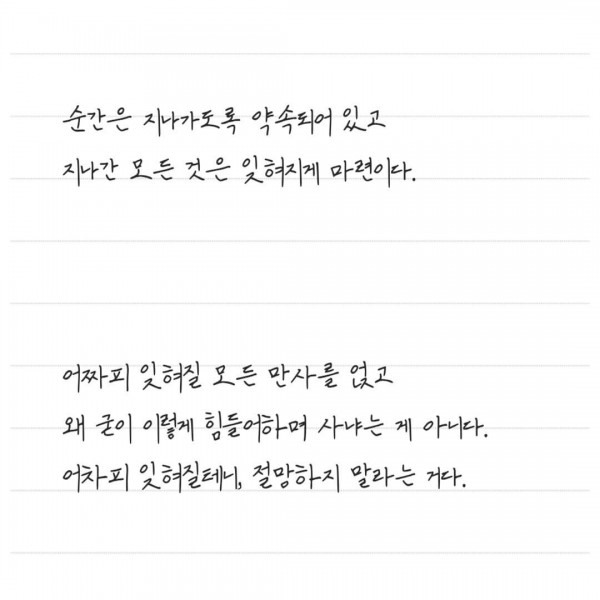 순간은 지나가도록 약속되어 있고
지나간 모든 것은 잊혀지게 마련이다.
어짜피 잊혀질 모든 만사를 얹고
왜 굳이 이렇게 힘들어하며 사냐는 게 아니다.
어차피 잊혀질테니, 절망하지 말라는 거다.